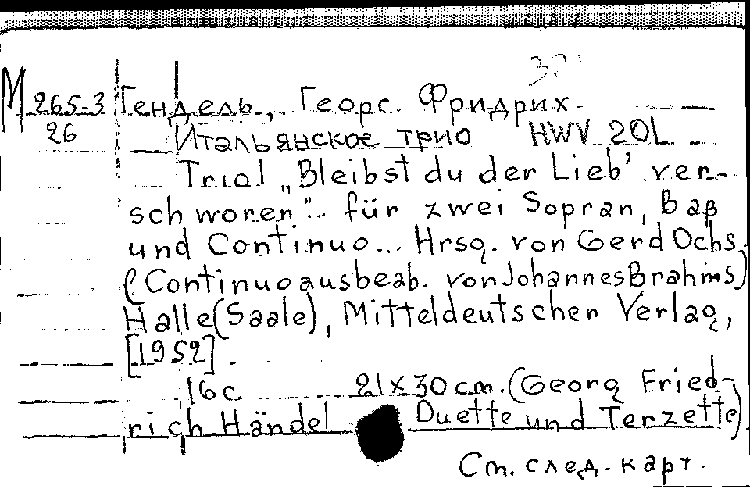 М 265-3 Гендель, Георг. Фридрих.
26 Итальянское трио HWV 201
Trial „Bleibst du der Lieb' ver-
schworen". für zwei Sopran, Baß
und Continuo... Hrsg. von Gerd Ochs.
(Continuoausbeab. von Johannes Brahms)
Halle(Saale), Mitteldeutschen Verlag,
[1952].
16 с 21x30 cm. (Georg Fried-
rich Händel Duette und Terzette)
См. след. карт.